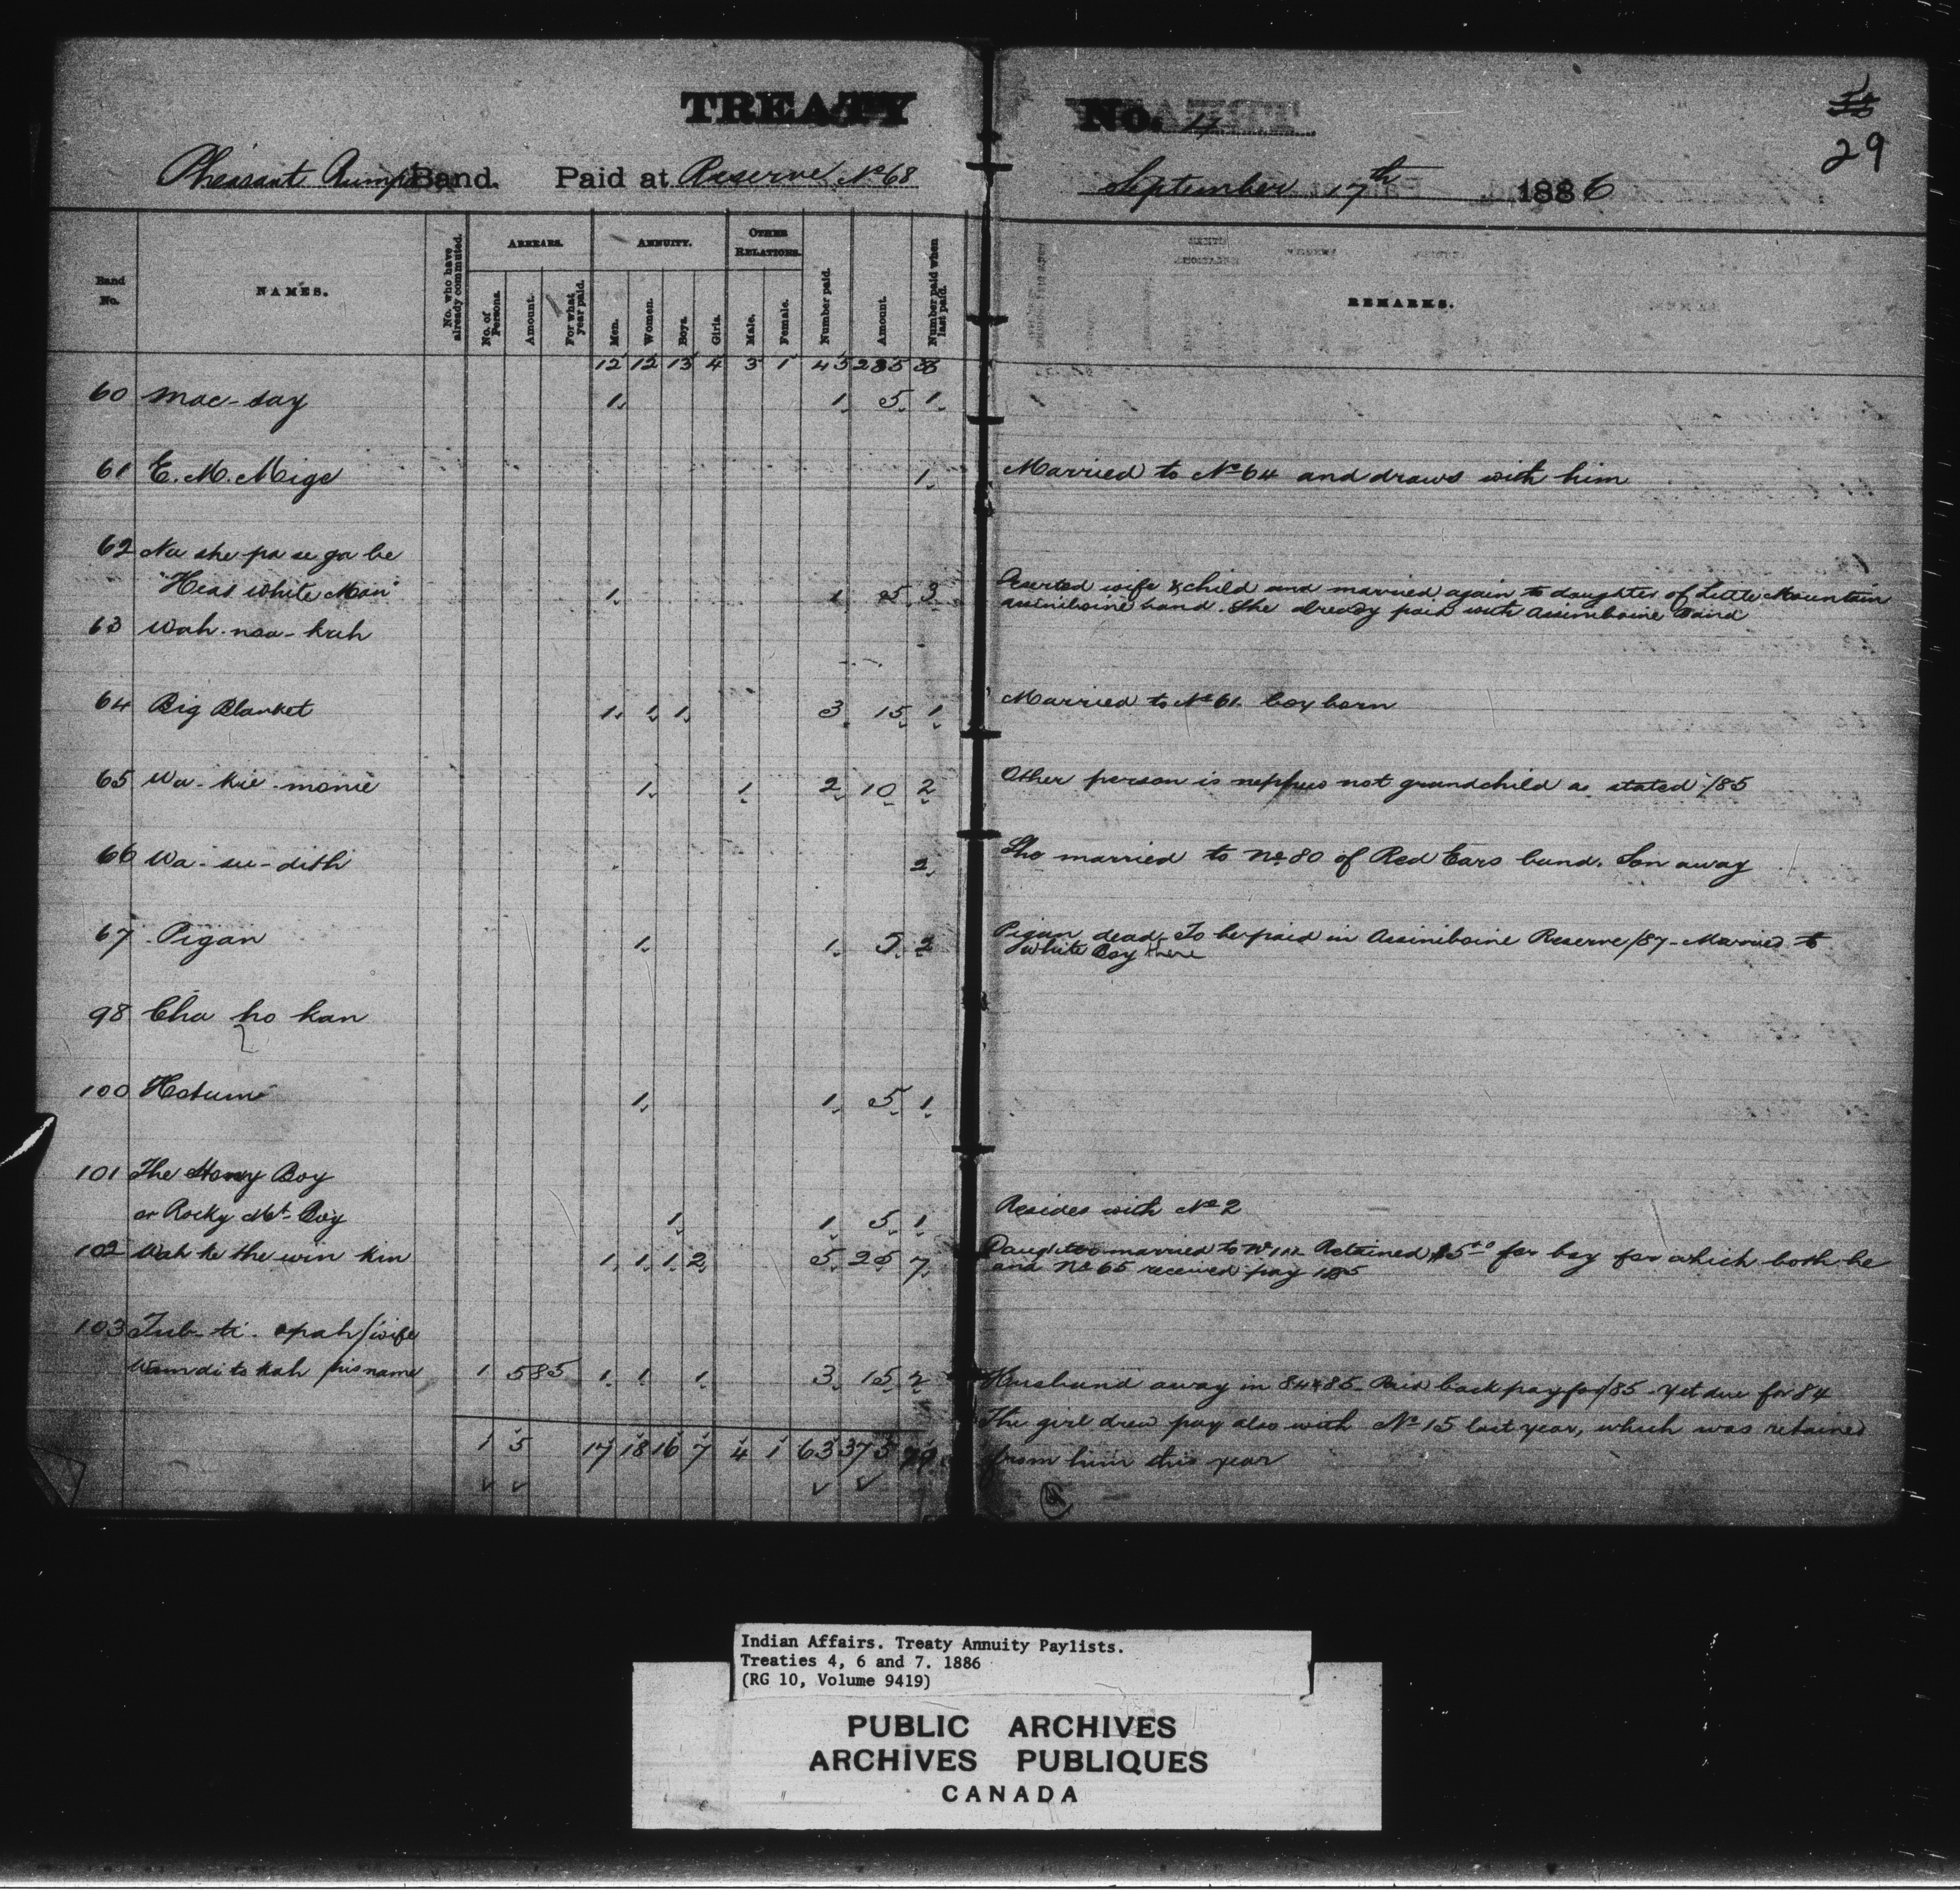 TREATY No. 4
29
Pheasant Rump's Band. Paid at Reserve No 68 September 17th 1886
Band No. NAMES. No. who have already commuted. ARREARS. No. of Persons. Amount. For what year paid. ANNUITY. Men. Women. Boys. Girls. OTHER RELATIONS. Male. Female. Number paid. Amount. Number paid when last paid. REMARKS.
12 12 13 4 3 1 45 285
60 Mac-say 1 1 5 1
61 E. M. Mige 1 Married to No 64 and draws with him
62 Na she pa se ga be
"Head White Man" 1 1 5 3 Deserted wife & child and married again to daughter of Little Mountain
assiniboine band. She already paid with Assiniboine Band
63 Wah-noo-kah
64 Big Blanket 1 1 1 3 15 1 Married to No 61. boy born
65 Wa-kie-monie 1 1 2 10 2 Other person is nephew not grandchild as stated /85
66 Wa-su-dith 2 She married to No 80 of Red Ears band. Son away
67 Pigan 1 1 5 2 Pigan dead. To be paid in Assiniboine Reserve/87 - Married to
White Boy there
98 Cha ho kan
100 Hotum 1 1 5 1
101 The Stoney Boy
or Rocky Mt. Boy 1 1 5 1 Resides with No 2
102 Wah ke the win kin 1 1 1 2 5 25 7 Daughter married to Retained $5 for boy for which both he
and No 65 received pay 1885
103 Tub-ti-opah/wife
Wamdi to kah his name 1 5 85 1 1 1 3 15 2 Husband away in 84 & 85. Paid back pay for /85 - yet due for 84
The girl drew pay also with No 15 last year, which was retained
1 5 17 18 16 7 4 1 63 375 from him this year
Indian Affairs. Treaty Annuity Paylists.
Treaties 4, 6 and 7. 1886
(RG 10, Volume 9419)
PUBLIC ARCHIVES
ARCHIVES PUBLIQUES
CANADA